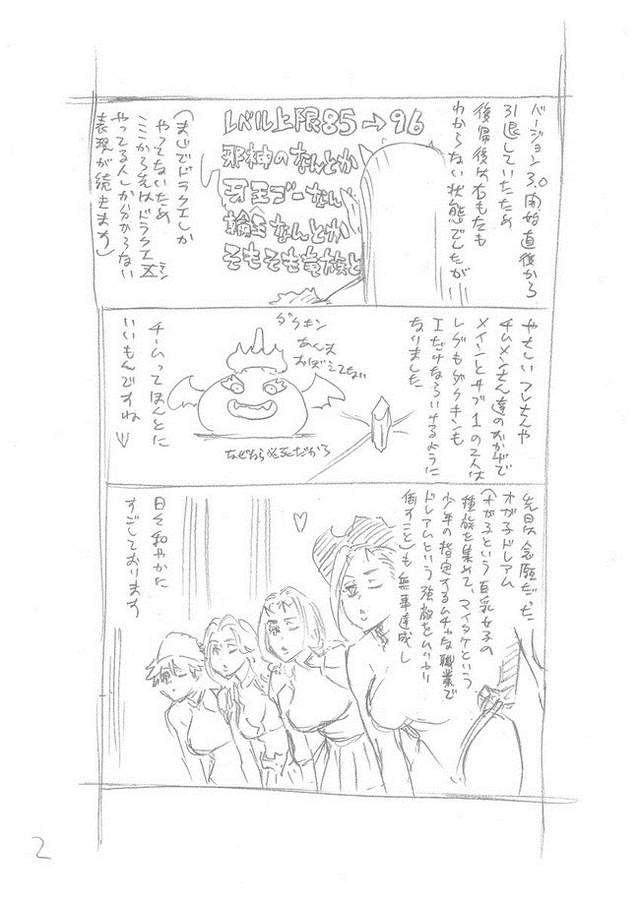 バージョン3.0開始直後から
引退していたため
復帰後は右も左も
わからない状態でしたが
レベル上限85→96
邪神のなんとか
牙王ゴーなん
輪王なんとか
そもそも竜族と
(まじでドラクエしか
やってないため
ここから先はドラクエⅩ
やってる人しか分からない
表現が続きます)
やさしいフレさんや
チムメイさん達のおかげで
メインとサブ1の2人は
レグもダークキンも
Ⅰだけならいけるように
なりました
ダークキン
あんま
おぼえてない
なぜなら必死だから
チームってほんとに
いいもんですね♡
先日は念願だった
オガ子ドレアム
(オガ子という巨乳女子の
種族を集めて、マイタケという
少年の指定するムチャな職業で
ドレアムという強敵をムリヤリ
倒すこと)も無事達成し
♡
日々和やかに
すごしております
2